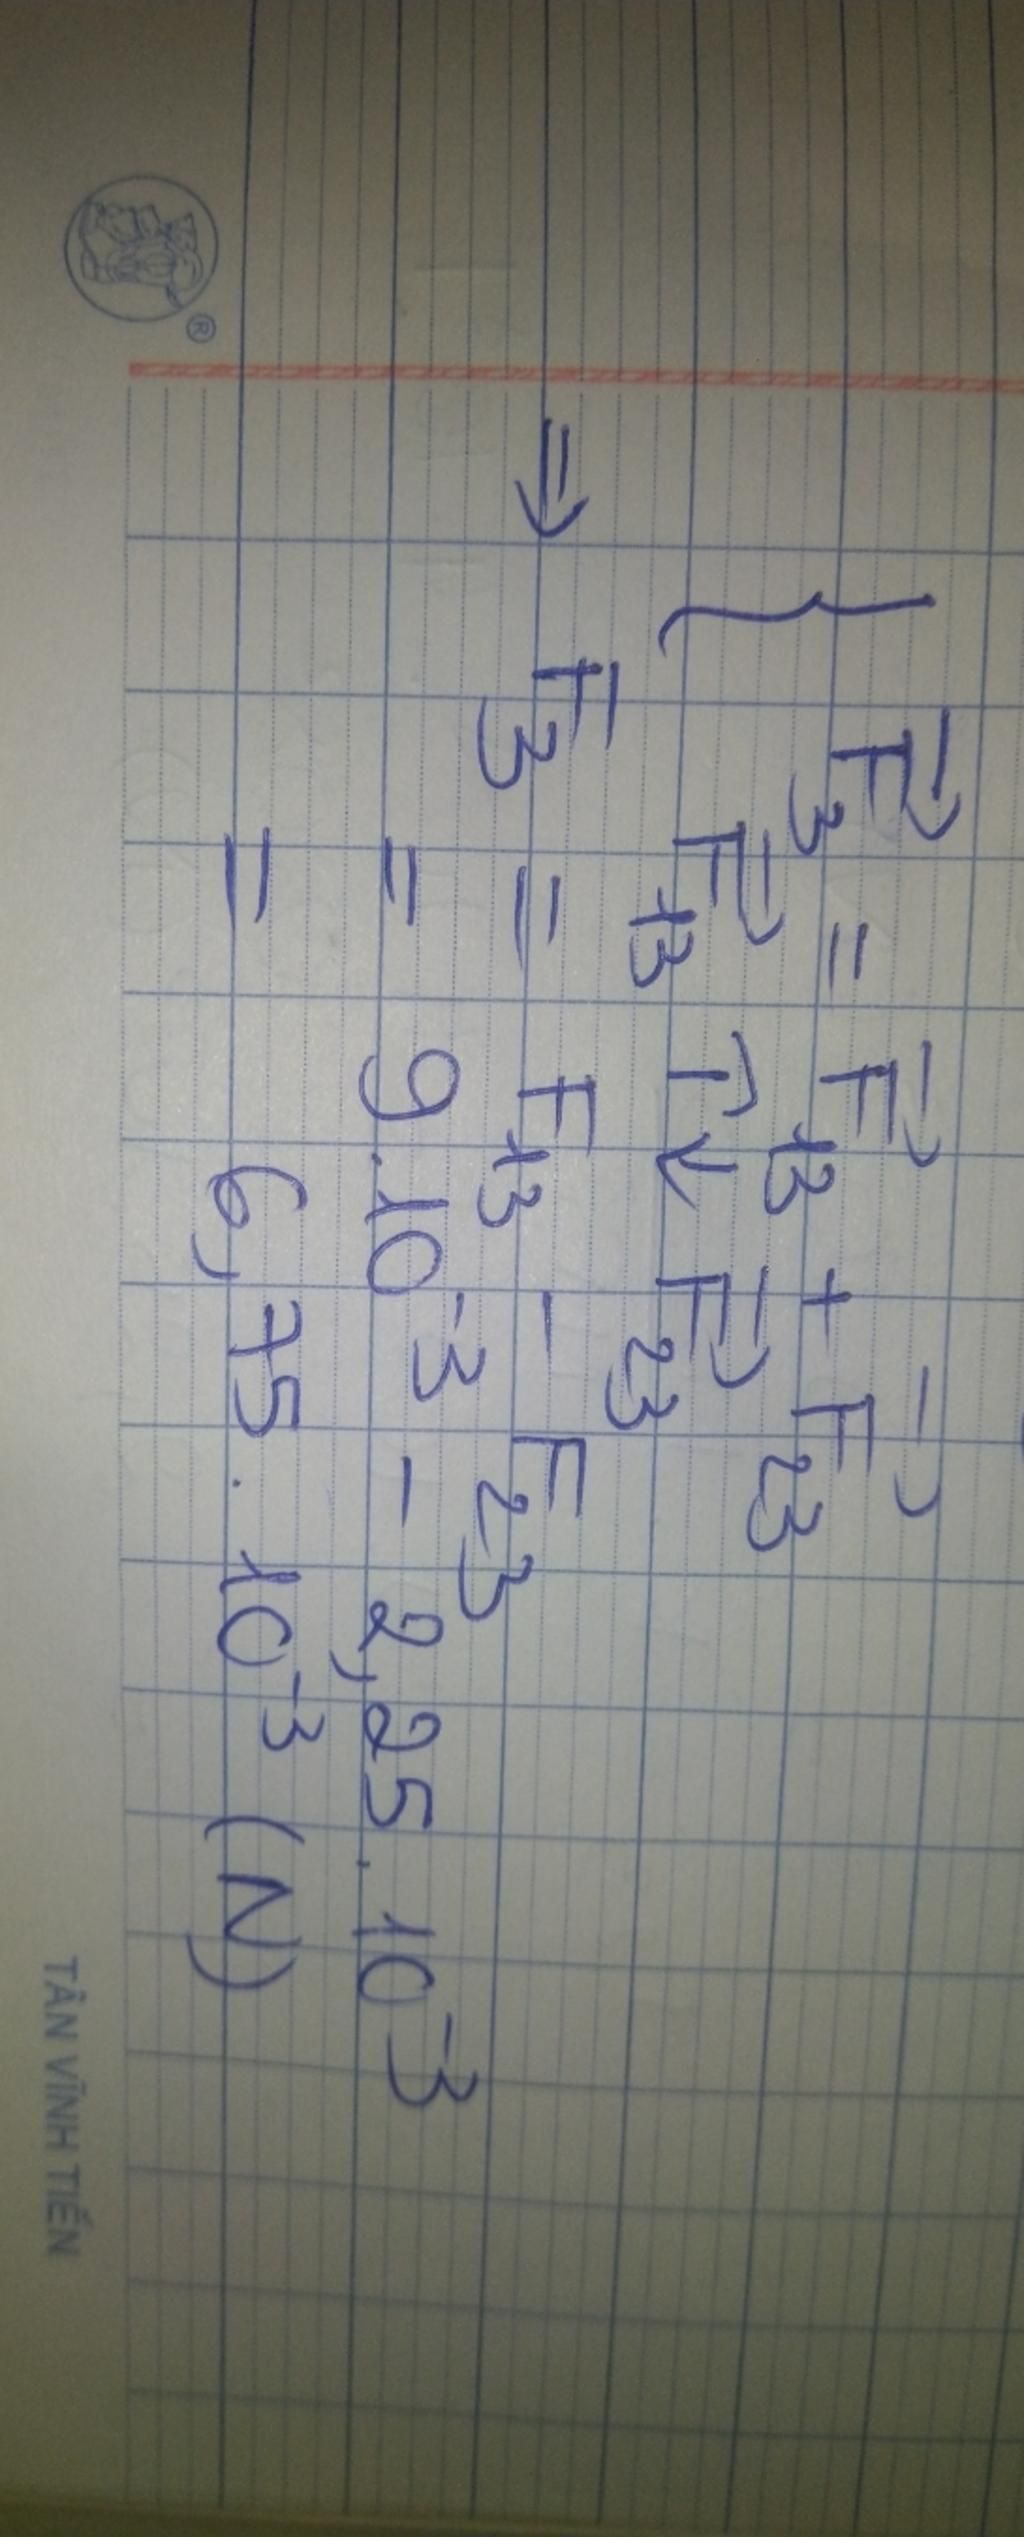 { F⃗₃ = F⃗₁₃ + F⃗₂₃
F⃗₁₃ ↑↓ F⃗₂₃
⇒ F₃ = F₁₃ - F₂₃
= 9.10⁻³ - 2,25.10⁻³
= 6,75.10⁻³ (N)
®
TÂN VĨNH TIẾN